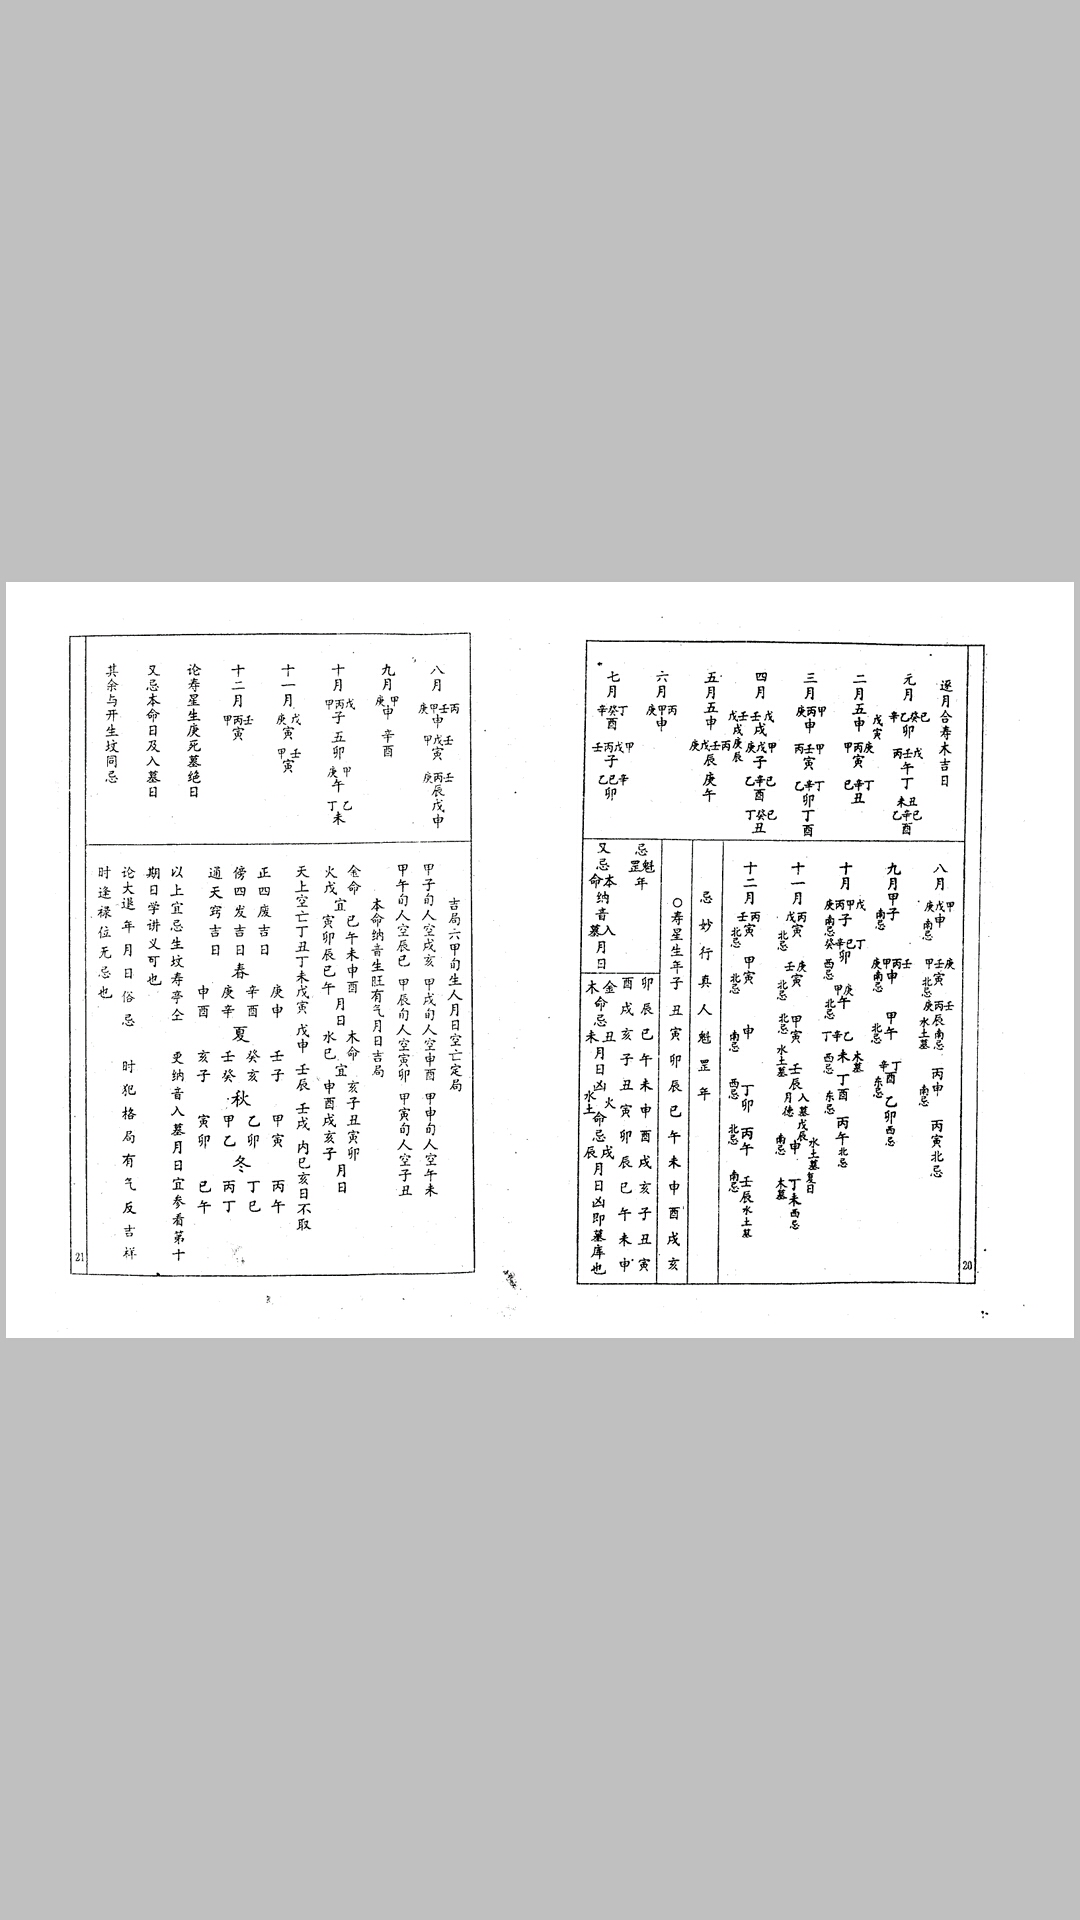 逐月合寿木吉日
元月 辛乙癸己卯 丙壬戊午丁 未丑乙辛己酉
二月五申 戊寅 甲丙庚寅 己辛丁丑
三月 庚丙甲申 丙壬甲寅 乙辛丁卯丁酉
四月 戊壬戊戌 庚戊甲子 乙辛己酉 丁癸己丑
五月五申 庚戊壬丙辰庚午
六月 庚甲丙申
七月 辛癸丁酉 壬丙戊甲子 乙己辛卯
八月 庚戊甲申南忌 甲壬庚寅北忌 庚丙壬辰南忌水土墓 丙申南忌 丙寅北忌
九月甲子南忌 庚甲丙壬申南忌 甲午北忌 辛丁酉东忌 乙卯西忌
十月 庚丙甲戊子南忌 癸辛己丁卯西忌 甲庚午北忌 丁辛乙未西忌木墓 丁酉东忌 丙午北忌
十一月 戊丙寅北忌 壬庚寅北忌 甲寅北忌 壬辰水土墓月德 入墓戊辰水土墓复日 申南忌 丁未西忌木墓
十二月 壬丙寅北忌 甲寅北忌 申南忌 丁卯西忌 丙午北忌 壬辰水土墓南忌
忌妙行真人魁罡年
○寿星生年子丑寅卯辰巳午未申酉戌亥
忌魁罡年
卯辰巳午未申酉戌亥子丑寅
酉戌亥子丑寅卯辰巳午未申
又忌本命纳音入墓月日
金命忌丑月日凶 火命忌戌月日凶即墓库也
木未 水土辰
20
八月 庚甲壬丙申 甲戊壬寅 庚丙壬辰戊申
九月 庚甲申 辛酉
十月 甲丙戊子 五卯 庚甲午 丁乙未
十一月 庚戊寅 甲壬寅
十二月 甲丙壬寅
论寿星生庚死墓绝日
又忌本命日及入墓日
其余与开生坟同忌
吉局六甲旬生人月日空亡定局
甲子旬人空戌亥 甲戌旬人空申酉 甲申旬人空午未
甲午旬人空辰巳 甲辰旬人空寅卯 甲寅旬人空子丑
本命纳音生旺有气月日吉局
金命宜巳午未申酉月日 木命宜亥子丑寅卯月日
火戊寅卯辰巳午 水巳申酉戌亥子
天上空亡丁丑丁未戊寅戊申壬辰壬戌内巳亥日不取
正四废吉日 庚申 壬子 甲寅 丙午
傍四发吉日春 辛酉 夏 癸亥 秋 乙卯 冬 丁巳
庚辛 壬癸 甲乙 丙丁
通天窍吉日 申酉 亥子 寅卯 巳午
以上宜忌生坟寿亭仝 更纳音入墓月日宜参看第十
期日学讲义可也
论大退年月日俗忌 时犯格局有气反吉祥
时逢禄位无忌也
21